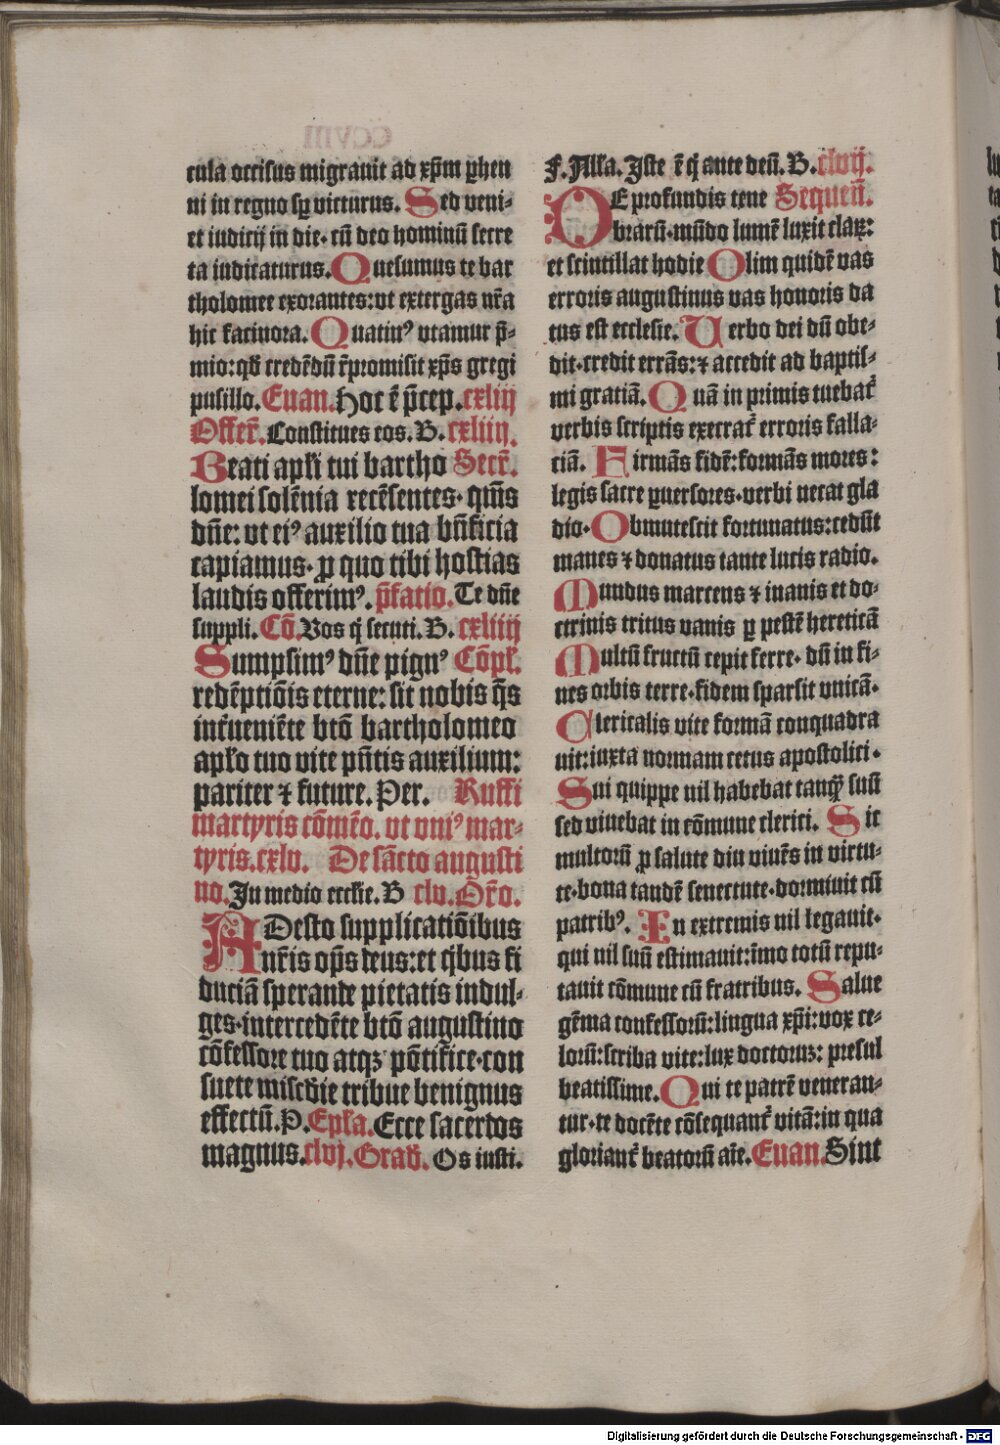 cula occisus migrauit ad xp̄m ꝑhen
ni in regno sꝑ victurus. Sed veni-
et iudicij in die. cū deo hominū secre
ta iudicaturus. Quesumus te bar
tholomee exorantes: vt extergas nr̄a
hic facinora. Quatinꝰ vtamur p̄-
mio: qd̄ credēdū r̄promisit xp̄s gregi
pusillo. Euan. Hoc ē p̄cep. cxliij
Offer̄. Constitues eos. B. cxliiij.
Beati apl̄i tui bartho Secr̄.
lomei solēnia recēsentes. qm̄s
dn̄e: vt eiꝰ auxilio tua bn̄ficia
capiamus. ꝓ quo tibi hostias
laudis offerimꝰ. p̄fatio. Te dn̄e
suppli. Cō. Vos q̄ secuti. B. cxliiij
Sumpsimꝰ dn̄e pignꝰ Cōpl̄.
redēptiōis eterne: sit nobis q̄s
int̄ueniēte btō bartholomeo
apl̄o tuo vite pn̄tis auxilium:
pariter ⁊ future. Per. Ruffi
martyris cōmēo. vt vniꝰ mar-
tyris. cxlv. De sācto augusti
no. In medio eccl̄ie. B clv. Or̄o.
ADesto supplicatiōibus
nr̄is op̄s deus: et q̄bus fi
duciā sperande pietatis indul-
ges. intercedēte btō augustino
cōfessore tuo atqꝫ pōtifice. con
suete misc̄die tribue benignus
effectū. P. Epl̄a. Ecce sacerdos
magnus. clvj. Grad̄. Os iusti.
F. Alla. Iste ē q̄ ante deū. B. clvij.
DE profundis tene Sequen̄.
brarū. mūdo lumē luxit claꝝ:
et scintillat hodie Olim quidē vas
erroris augustinus vas honoris da
tus est ecclesie. Uerbo dei dū obe-
dit. credit errās: ⁊ accedit ad baptis-
mi gratiā. Quā in primis tuebat̄
verbis scriptis execrat̄ erroris falla-
ciā. Firmās fidē: formās mores:
legis sacre ꝑuersores. verbi necat gla
dio. Obmutescit fortunatus: cedūt
manes ⁊ donatus tante lucis radio.
Mundus marcens ⁊ inanis et do-
ctrinis tritus vanis ꝑ pestē hereticā
Multū fructū cepit ferre. dū in fi-
nes orbis terre. fidem sparsit vnicā.
Clericalis vite formā conquadra
uit: iuxta normam cetus apostolici.
Sui quippe nil habebat tanq̄ suū
sed viuebat in cōmune clerici. Sic
multorū ꝓ salute diu viuēs in virtu-
te. bona tandē senectute. dormiuit cū
patribꝰ. In extremis nil legauit.
qui nil suū estimauit: īmo totū repu-
tauit cōmune cū fratribus. Salue
gēma confessorū: lingua xp̄i: vox ce-
lorū: scriba vite: lux doctoruꝫ: presul
beatissime. Qui te patrē veneran-
tur. te docēte cōsequant̄ vitā: in qua
gloriant̄ beatorū aīe. Euan. Sint
Digitalisierung gefördert durch die Deutsche Forschungsgemeinschaft - DFG